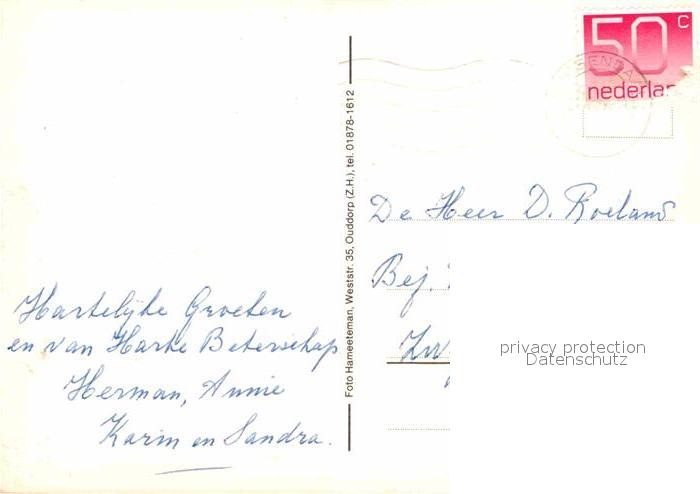 50 c
nederlan
SENDA
Foto Hameeteman, Weststr. 35, Ouddorp (Z.H.), tel. 01878-1612
De Heer D. Roeland
Bej.
Zw
privacy protection
Datenschutz
Hartelijke Groeten
en van Harte Beterschap
Herman, Annie
Karin en Sandra.